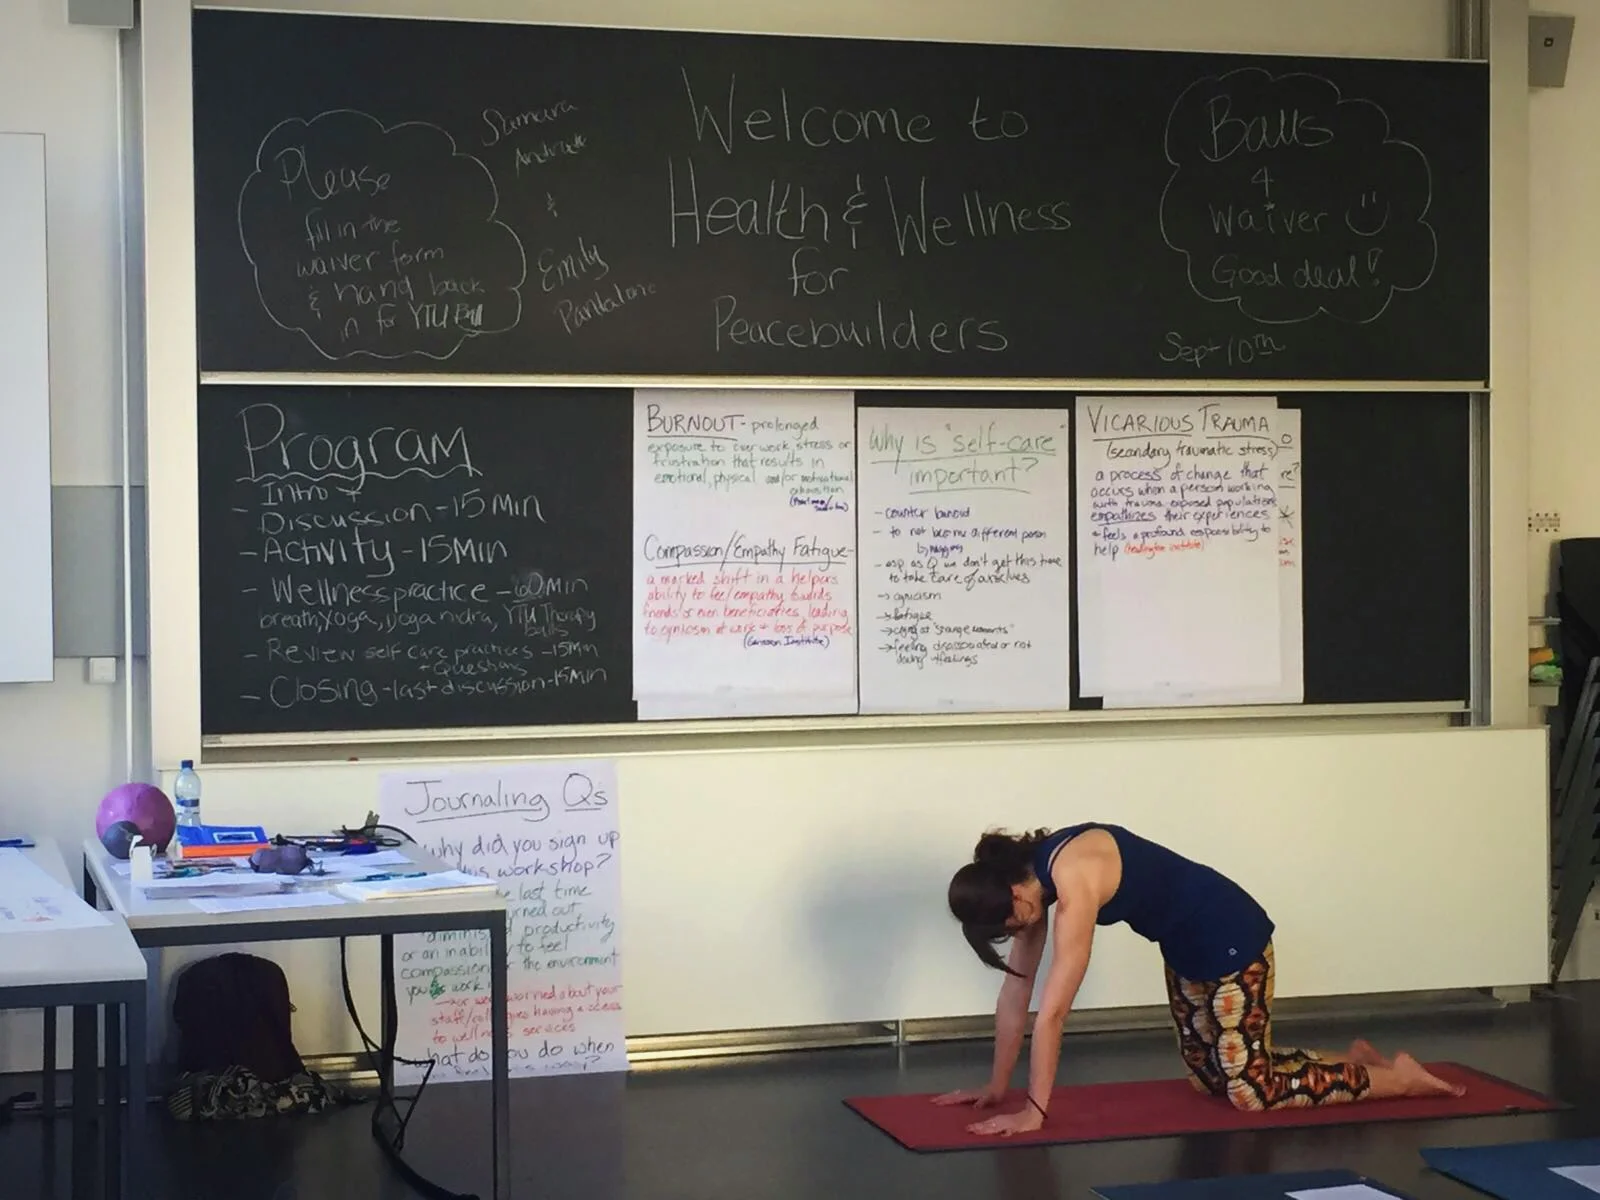 Please
fill in the
waiver form
& hand back
in for YTU Ball
Samara
Andrade
&
Emily
Pantalone
Welcome to
Health & Wellness
for
Peacebuilders
Balls
4
waiver
Good deal!
Sept 10th
Program
- Intro +
Discussion - 15 Min
- Activity - 15 Min
- Wellness practice - 60 Min
breath, yoga, yoga nidra, YTU Therapy
balls
- Review self care practices - 15 Min
+ Questions
- Closing - last discussion - 15 Min
BURNOUT - prolonged
exposure to over work, stress or
frustration that results in
emotional, physical and/or motivational
exhaustion
Compassion/Empathy Fatigue -
a marked shift in a helpers
ability to feel empathy towards
friends or even beneficiaries, leading
to cynicism at work + loss of purpose
Why is "self-care"
important?
- counter
- to not become a different person
- esp. as we don't get this time
to take care of ourselves
→ cynicism
→ fatigue
→ crying at "strange moments"
→ feeling or not
feelings
VICARIOUS TRAUMA
(secondary traumatic stress)
a process of change that
occurs when a person working
with trauma exposed populations
empathizes their experiences
+ feels a profound responsibility to
help (Headington Institute)
Journaling Qs
why did you sign up
workshop?
last time
productivity
or an to feel
compassion the environment
you work
worried about your
staff/ having access
to services
do you do when